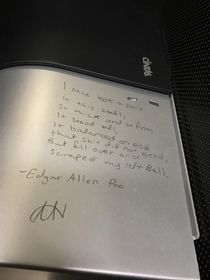 I once took a shit
in this stall,
So thick and so firm,
It stood tall,
It balanced on end
that shit did not bend,
But fell over and
scraped my left Ball.
-Edgar Allen Poo